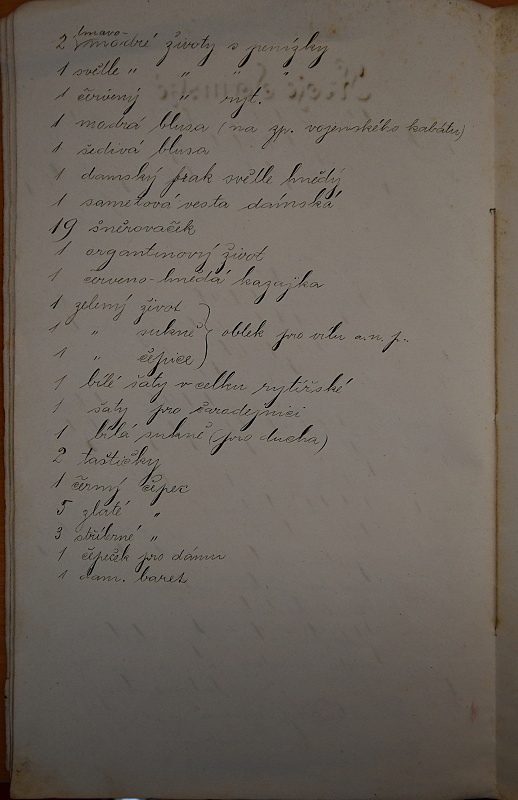 2 tmavo-modré životy s penízky
1 světle " " " "
1 červený " ryt.
1 modrá blusa (na zp. vojenského kabátu)
1 šedivá blusa
1 damský frak světle hnědý
1 sametová vesta dámská
19 šněrovaček
1 organtinový život
1 červeno-hnědá kazajka
1 zelený život
1 " sukně } oblek pro vílu a.n.p.
1 " čepice
1 bílé šaty v celku rytířské
1 šaty pro čarodejnici
1 bílá sukně (pro ducha)
2 taštičky
1 černý čepec
5 zlaté "
3 stříbrné "
1 čepeček pro dámu
1 dam. baret